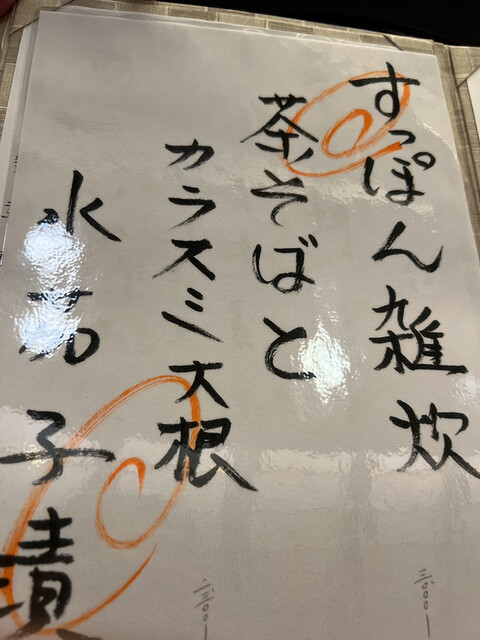 すっぽん雑炊
茶そばと
カラスミ大根
水茄子漬